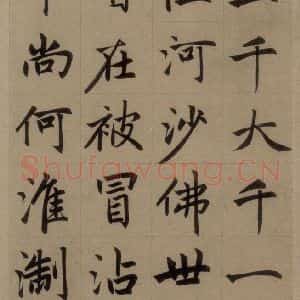 千大千一
河沙佛世
在被冒沾
尚何淮制
Shufawang.CN